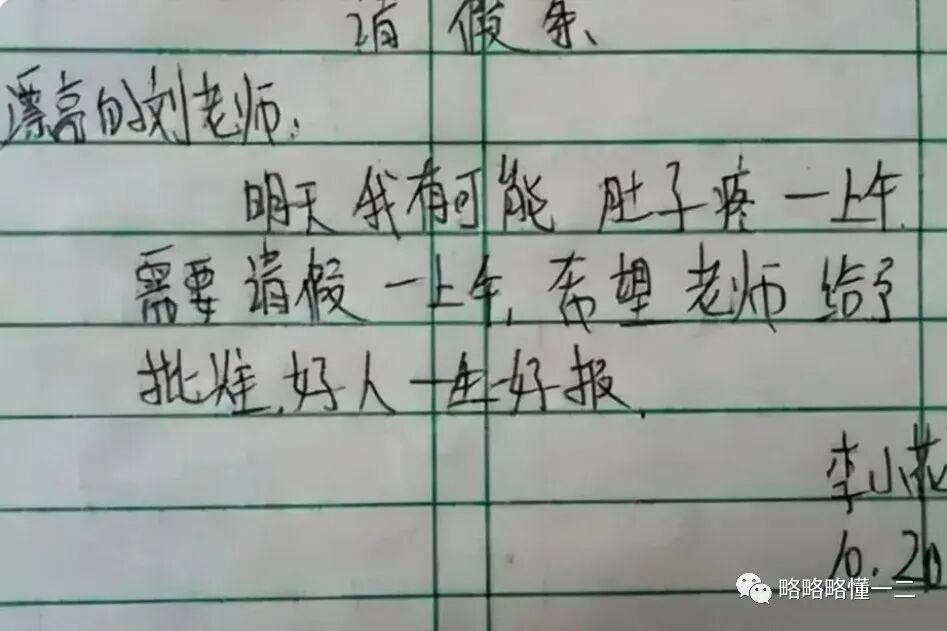 请假条
漂亮的刘老师.
明天我有可能 肚子疼一上午.
需要请假一上午,希望老师给予
批准,好人一生好报.
李小花
10.20
略略略懂一二